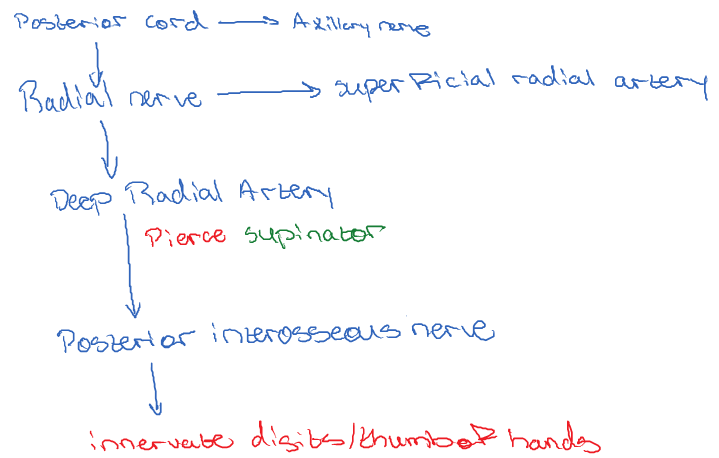 Posterior cord → Axillary nerve
Radial nerve → superficial radial artery
Deep Radial Artery
Pierce supinator
Posterior interosseous nerve
innervate digits/thumb of hands